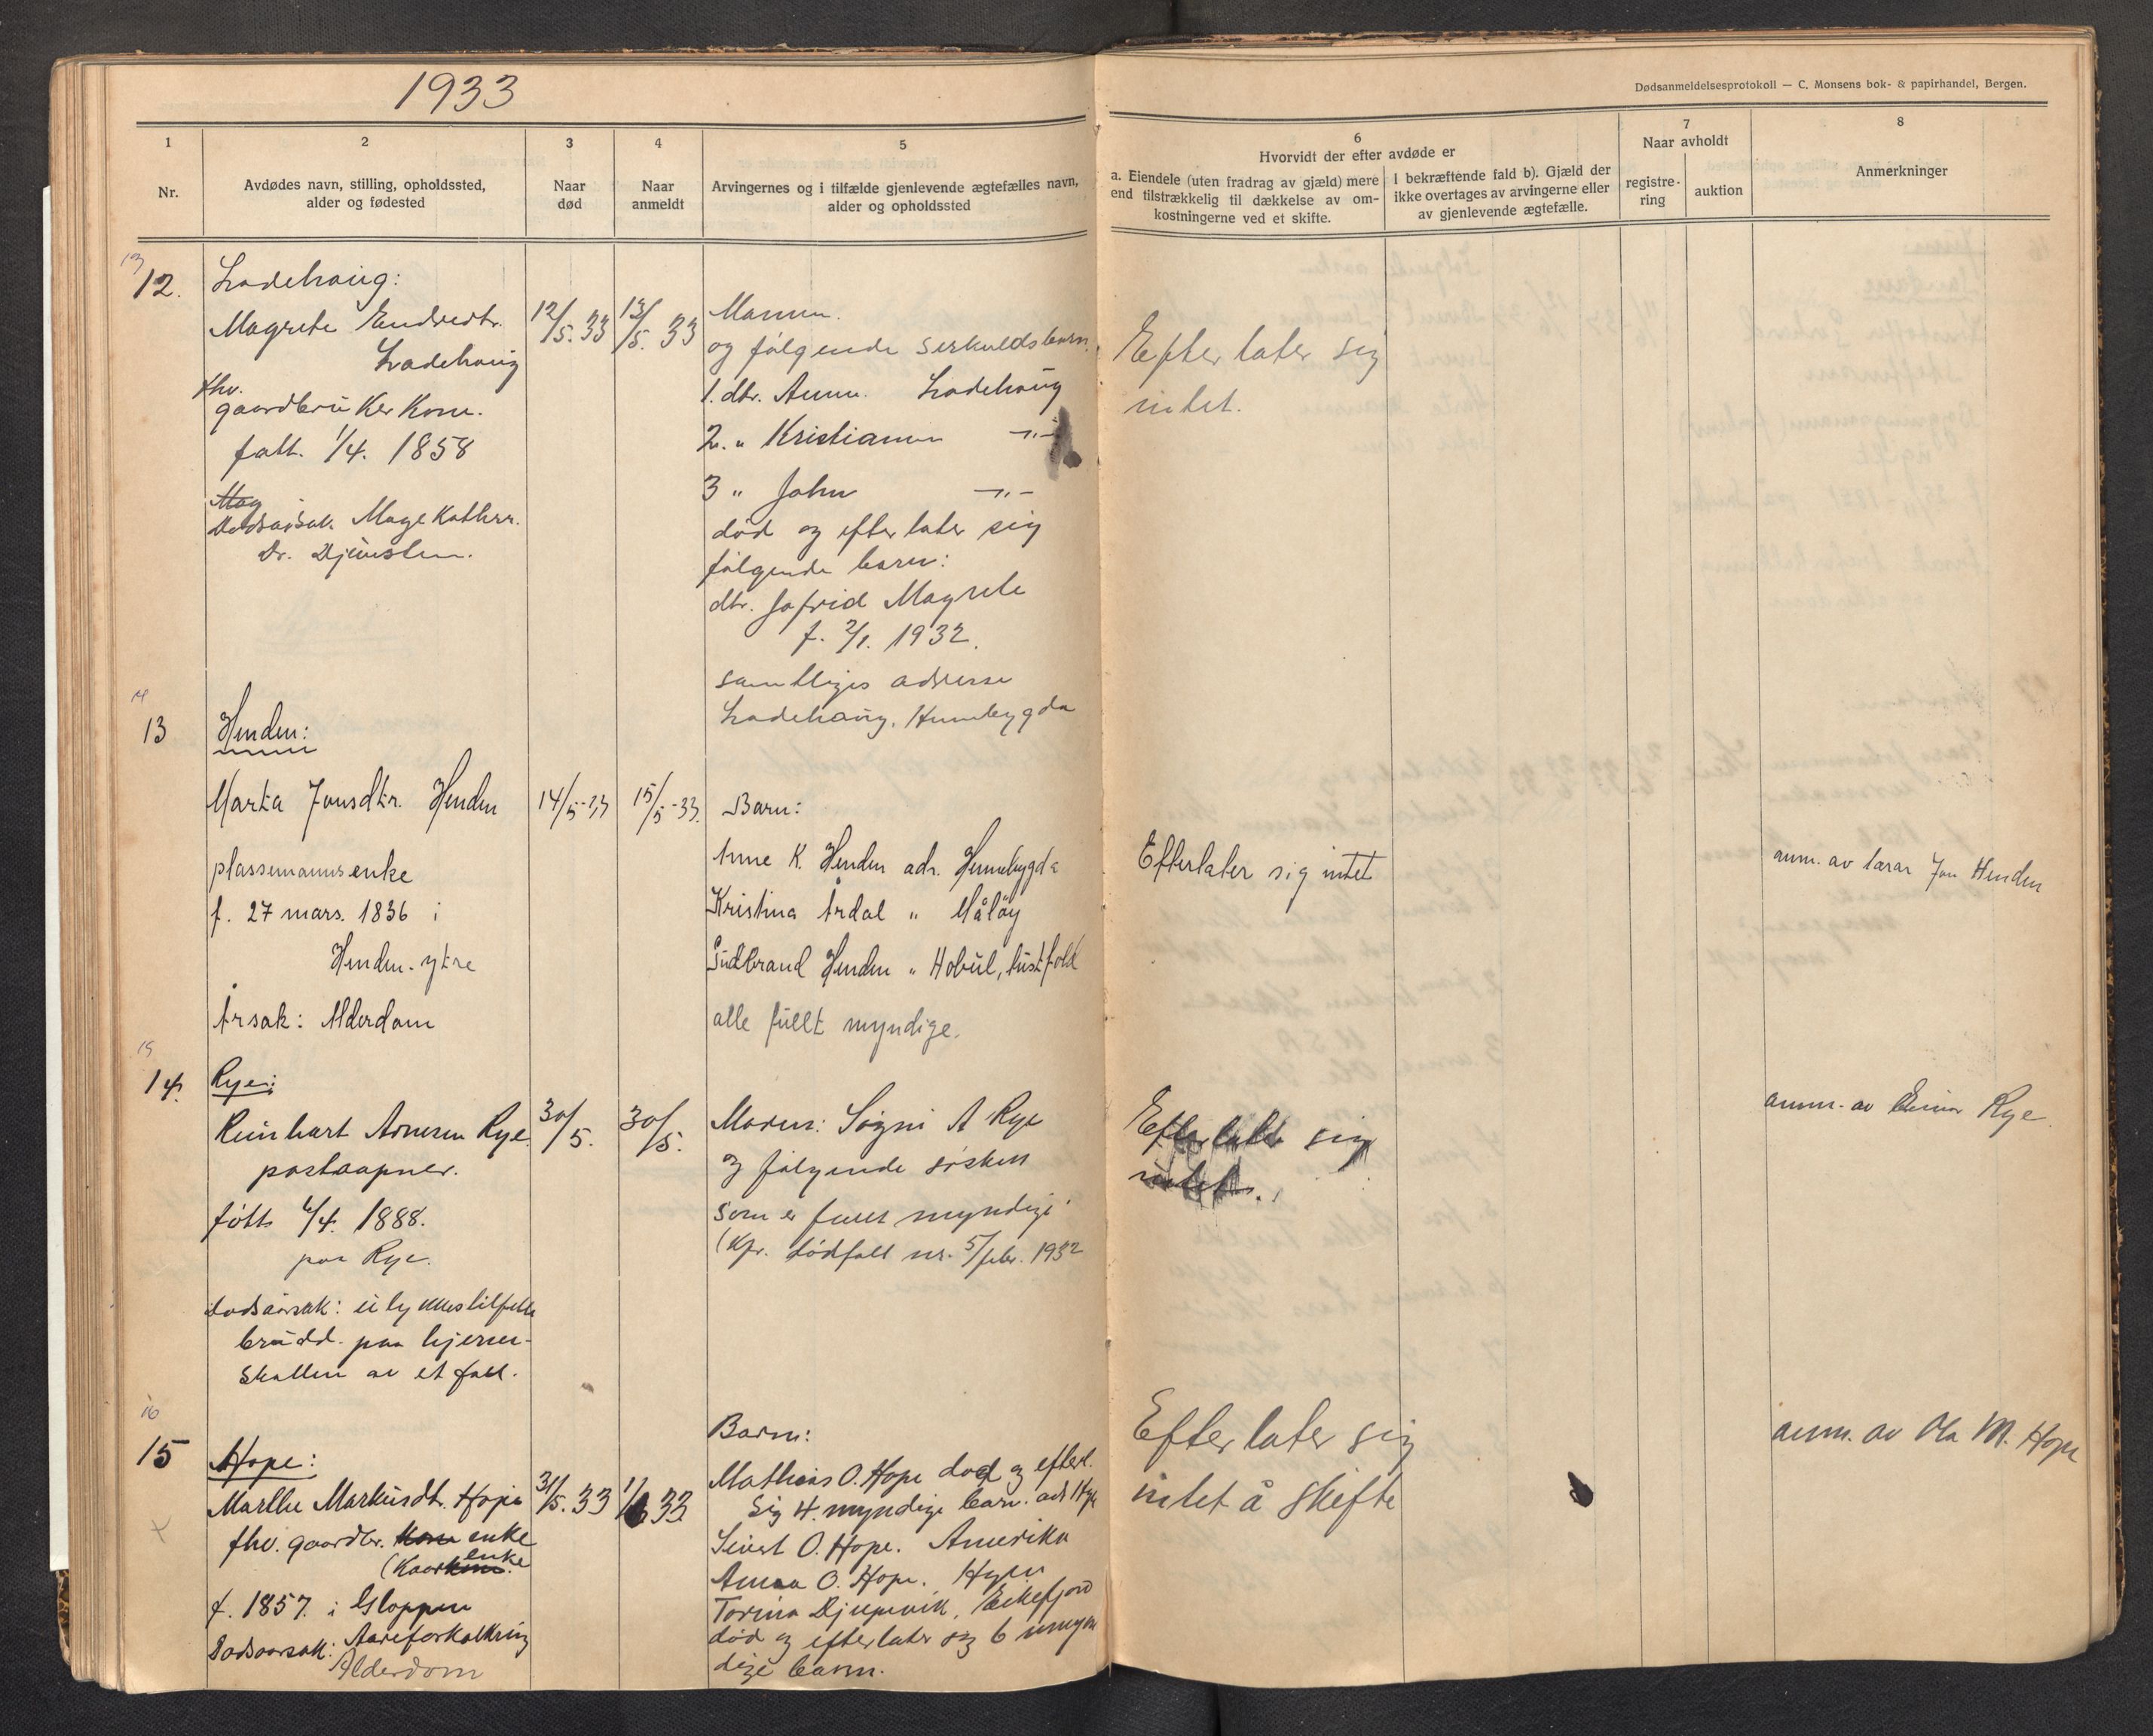 1933
Dødsanmeldelsesprotokoll — C. Monsens bok- & papirhandel, Bergen.
1
Nr.
2
Avdødes navn, stilling, opholdssted,
alder og fødested
3
Naar
død
4
Naar
anmeldt
5
Arvingernes og i tilfælde gjenlevende ægtefælles navn,
alder og opholdssted
6
Hvorvidt der efter avdøde er
a. Eiendele (uten fradrag av gjæld) mere
end tilstrækkelig til dækkelse av om-
kostningerne ved et skifte.
I bekræftende fald b). Gjæld der
ikke overtages av arvingerne eller
av gjenlevende ægtefælle.
7
Naar avholdt
registre-
ring
auktion
8
Anmerkninger
13
12.
Ladehaug:
Magrete Endredtr.
Ladehaug
fhv.
gaardbruker kone.
født. 1/4. 1858
Mag
Dødsaarsak Magekatharr.
Dr. Djuvsten.
12/5. 33
13/5. 33
Mannen.
og følgende serkuldsbarn.
1. dtr. Anna. Ladehaug
2. " Kristianna -"-
3 " John -"-
død og efterlater sig
følgende barn:
dtr. Jofrid Magrete
f. 2/1. 1932.
samtliges adresse
Ladehaug, Hennebygda
Efterlater sig
intet.
14
13
Henden:
Marta Jonsdtr. Henden
plassemannsenke
f. 27 mars. 1836 i
Henden-ytre
Årsak: Alderdom
14/5-33
15/5-33.
Barn:
Anne K. Henden adr. Hennebygda
Kristina Årdal " Måløy
Gudbrand Henden " Hobøl, Østfold
alle fullt myndige.
Efterlater sig intet
anm. av lærar Jon Henden
15
14.
Rye:
Reinhart Arnesen Rye
postaapner.
født 6/4. 1888.
paa Rye.
Dødsaarsak: ulykkestilfelle
brudd paa hjerne-
skallen av et fall.
30/5.
30/5.
Moren: Sogni A Rye
og følgende søsken
som er fullt myndige
(kfr. dødfall nr. 5/febr. 1932
Efterlater sig
intet.
anm. av Einar Rye.
16
15
Hope:
Marthe Markusdt. Hope
fhv. gaardbr. kone enke
enke
(Kaarkone.
f. 1857. i Gloppen
Dødsaarsak: Aareforkalkning
Alderdom
31/5. 33
1/6 33
Barn:
Mathias O. Hope død og efterl.
sig 4 myndige barn. adr Hyen
Sivert O. Hope. Amerika
Anna O. Hope. Hyen
Torina Djupevik, Eikefjord
død og efterlater sig 6 umyn
dige barn.
Efterlater sig
intet å skifte
anm. av Ola M. Hope